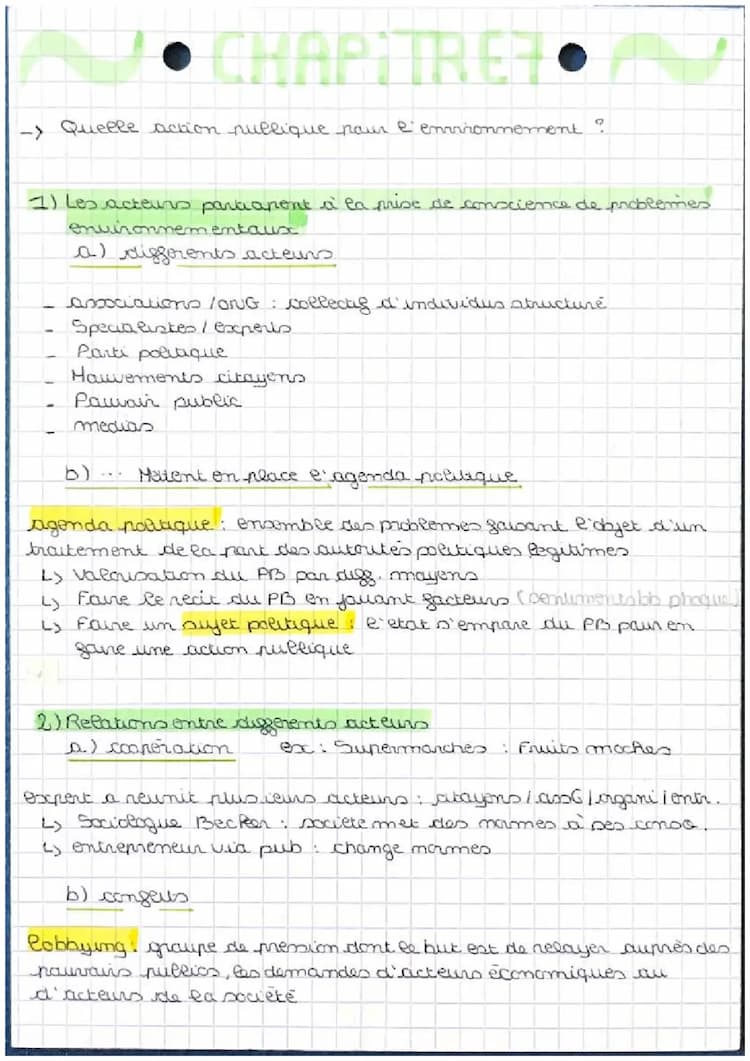 CHAPITRE 7
-> Quelle action publique pour l'environnement ?
1) Les acteurs participent à la prise de conscience de problèmes
environnementaux
a) différents acteurs
- associations / ONG : collectif d'individus structuré
- Spécialistes / experts
- Parti politique
- Mouvements citoyens
- Pouvoir public
- medias
b) ... Mettent en place l'agenda politique
agenda politique : ensemble des problèmes faisant l'objet d'un
traitement de la part des autorités politiques légitimes
↳ Valorisation du PB par diff. moyens
↳ Faire le récit du PB en jouant facteurs (sentiments bb phoque)
↳ Faire un sujet politique : l'état s'empare du PB pour en
faire une action publique
2) Relations entre différents acteurs
a) coopération ex : Supermarchés : Fruits moches
expert a réunit plusieurs acteurs : citoyens / assG / organi / entr.
↳ Sociologue Becker : société met des normes à ses conso.
↳ entrepreneur via pub : change normes
b) conflits
lobbying : groupe de pression dont le but est de relayer auprès des
pouvoirs publics, les demandes d'acteurs économiques ou
d'acteurs de la société